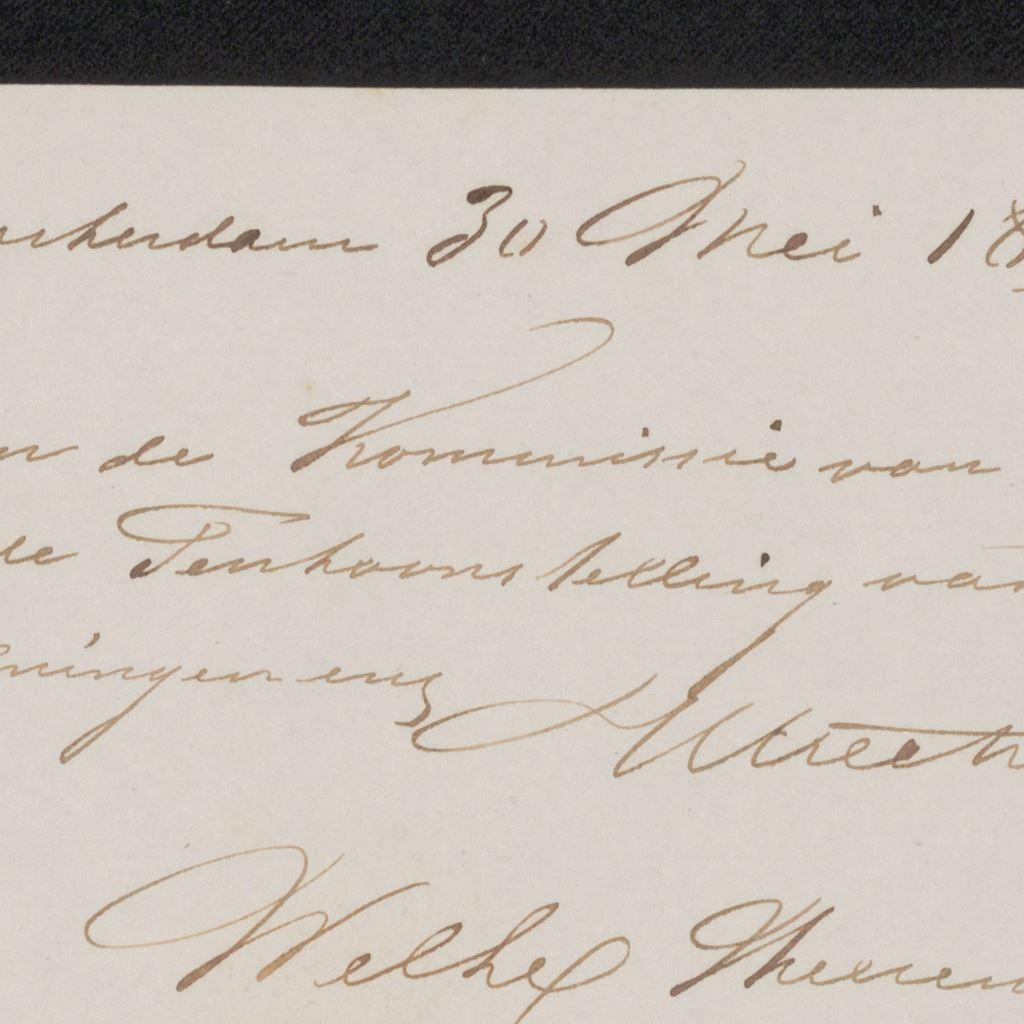 msterdam 30 Mei 18
n de Kommissie van
de Tenhoonstelling van
eningen enz Utrecht
WelEd Heeren